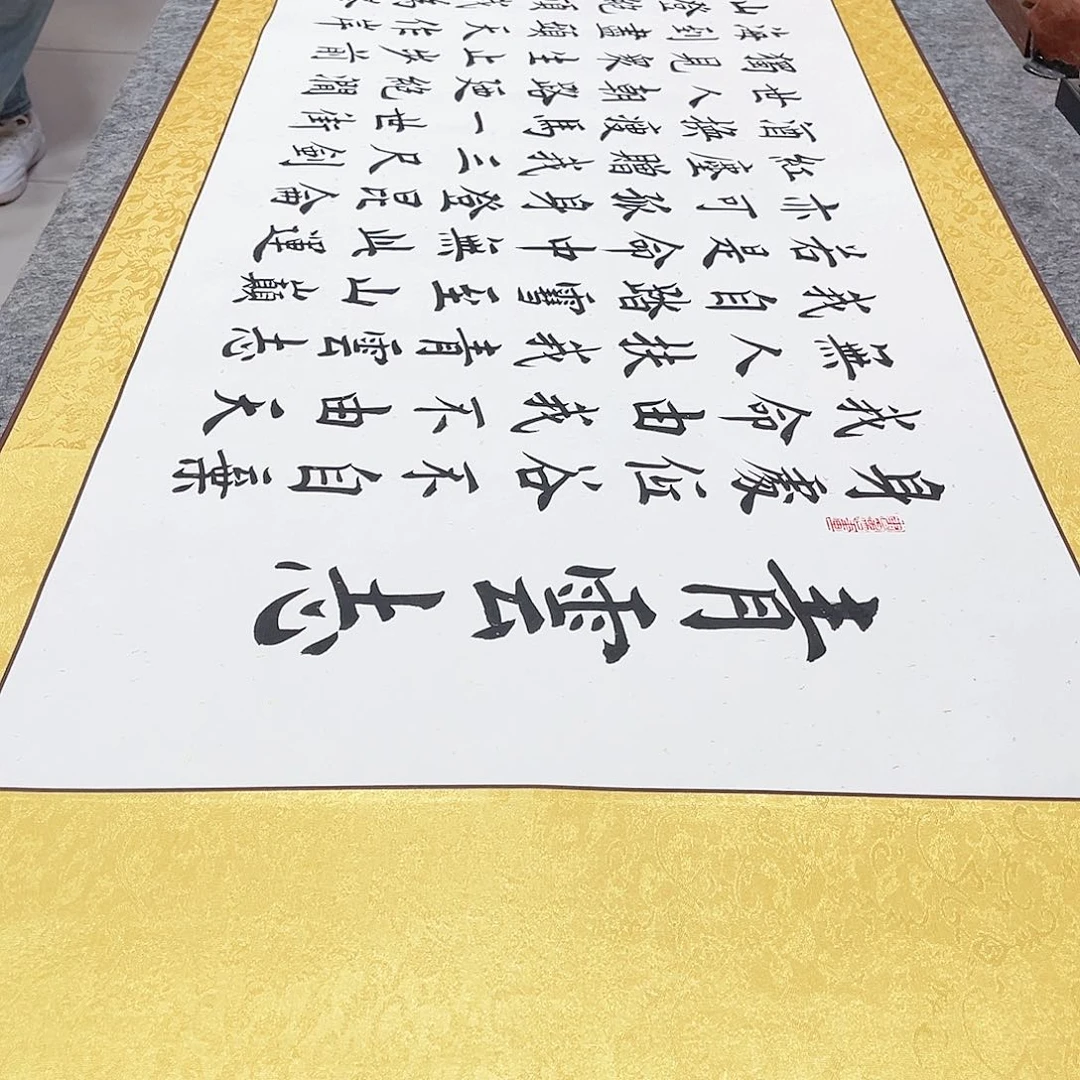 青雲志
身處低谷不自棄
我命由我不由天
無人扶我青雲志
我自踏雪至山巔
若是命中無此運
亦可孤身登昆侖
紅塵贈我三尺劍
酒換瘦馬一世街
世人朝路更絕澗
獨見眾生止步前
海到盡頭天作岸
山登絕頂我